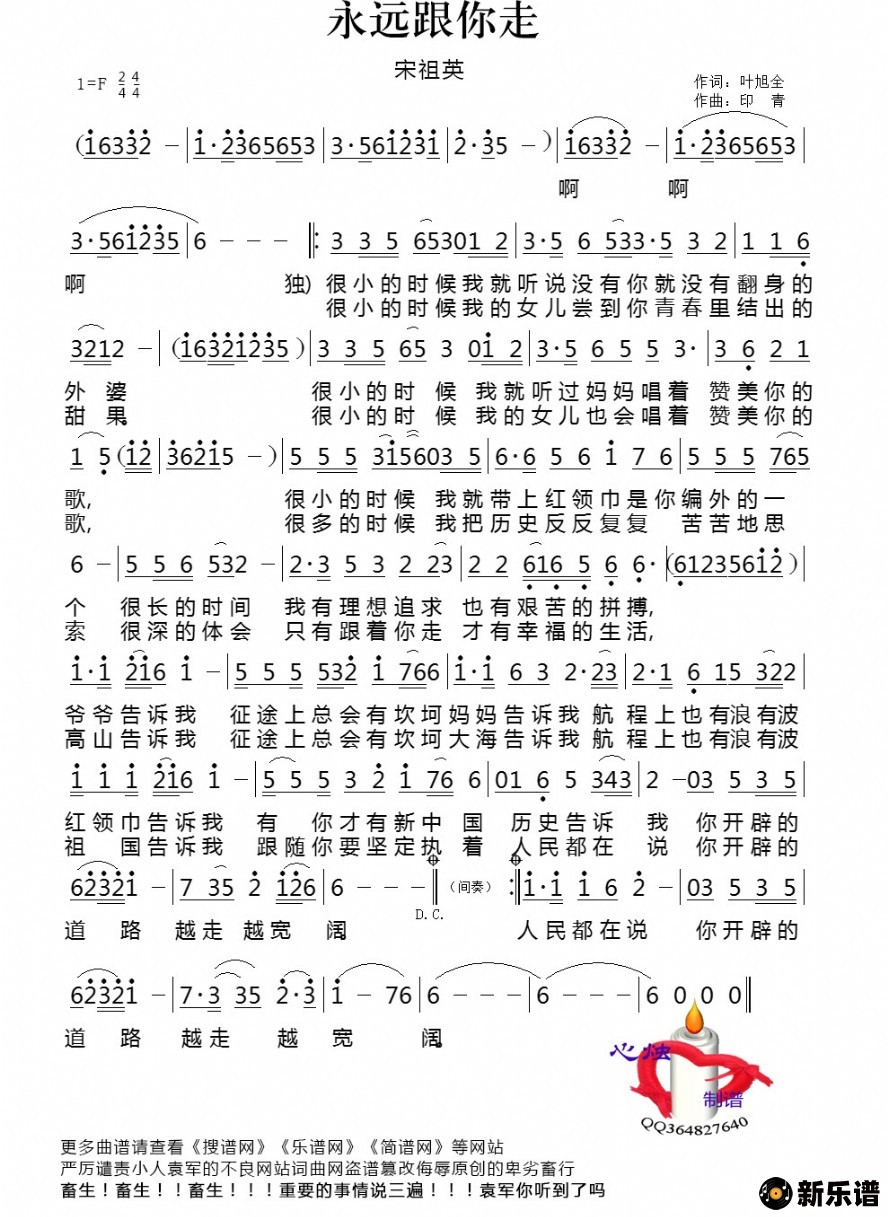 永远跟你走
宋祖英
1=F 2/4 4/4
作词：叶旭全
作曲：印 青
(16332 -|1·2365653|3·561231|2·35 -)|16332 -|1·2365653
啊 啊
3·561235|6 - - - ‖: 3 3 5 65301 2|3·5 6 533·5 3 2|1 1 6
啊 独) 很小的时候我就听说没有你就没有翻身的
很小的时候我的女儿尝到你青春里结出的
3212 -|(16321235)|3 3 5 65 3 01 2|3·5 6 5 5 3·|3 6 2 1
外 婆 很小的时 候 我就听过妈妈唱着 赞美你的
甜 果。 很小的时 候 我的女儿也会唱着 赞美你的
1 5(12|36215 -)|5 5 5 315603 5|6·6 5 6 1 7 6|5 5 5 765
歌, 很小的时候 我就带上红领巾是你编外的一
歌, 很多的时候 我把历史反反复复 苦苦地思
6 -|5 5 6 532 -|2·3 5 3 2 23|2 2 616 5 6 6·|(61235612)|
个 很长的时间 我有理想追求 也有艰苦的拼搏,
索 很深的体会 只有跟着你走 才有幸福的生活,
1·1 216 1 -|5 5 5 532 1 766|1·1 6 3 2·23|2·1 6 15 322
爷爷告诉我 征途上总会有坎坷妈妈告诉我 航程上也有浪有波
高山告诉我 征途上总会有坎坷大海告诉我 航程上也有浪有波
1 1 1 216 1 -|5 5 5 3 2 1 76 6|01 6 5 343|2 -03 5 3 5
红领巾告诉我 有 你才有新中 国 历史告诉 我 你开辟的
祖 国告诉我 跟随你要坚定执 着 人民都在 说 你开辟的
62321 -|7 35 2 126|6 - - ‖ (间奏) :‖1·1 1 6 2 -|03 5 3 5
D.C.
道 路 越走 越宽 阔。 人民都在说 你开辟的
62321 -|7·3 35 2·3|1 - 76|6 - - -|6 - - -|6 0 0 0‖
道 路 越走 越 宽 阔。
心烛
制谱
QQ364827640
更多曲谱请查看《搜谱网》《乐谱网》《简谱网》等网站
严厉谴责小人袁军的不良网站词曲网盗谱篡改侮辱原创的卑劣畜行
畜生！畜生！！畜生！！！重要的事情说三遍！！！袁军你听到了吗
新乐谱